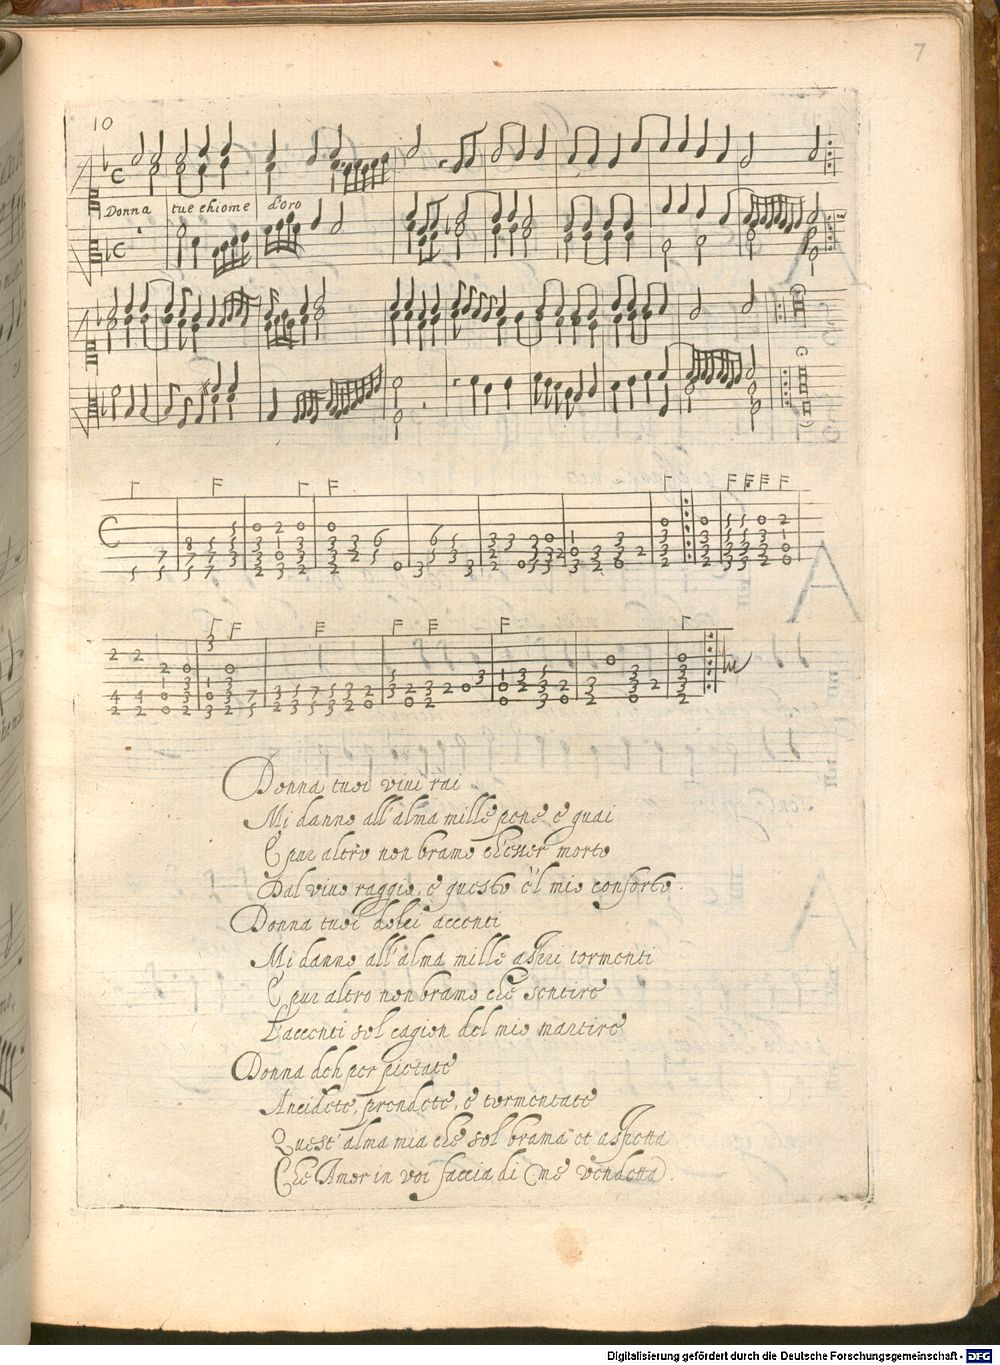 7
10
Donna tue chiome d'oro
Donna tuoi viui rai
Mi danno all'alma mille pene e guai
E pur altro non bramo ch'esser morto
Dal viuo raggio, e questo è'l mio conforto.
Donna tuoi dolci accenti
Mi danno all'alma mille aspri tormenti
E pur altro non bramo che sentire
L'accenti sol cagion del mio martire
Donna deh per pietate
Ancidete, prendete, e tormentate
Quest'alma mia che sol brama et aspetta
Che Amor in voi faccia di me vendetta.
Digitalisierung gefördert durch die Deutsche Forschungsgemeinschaft - DFG